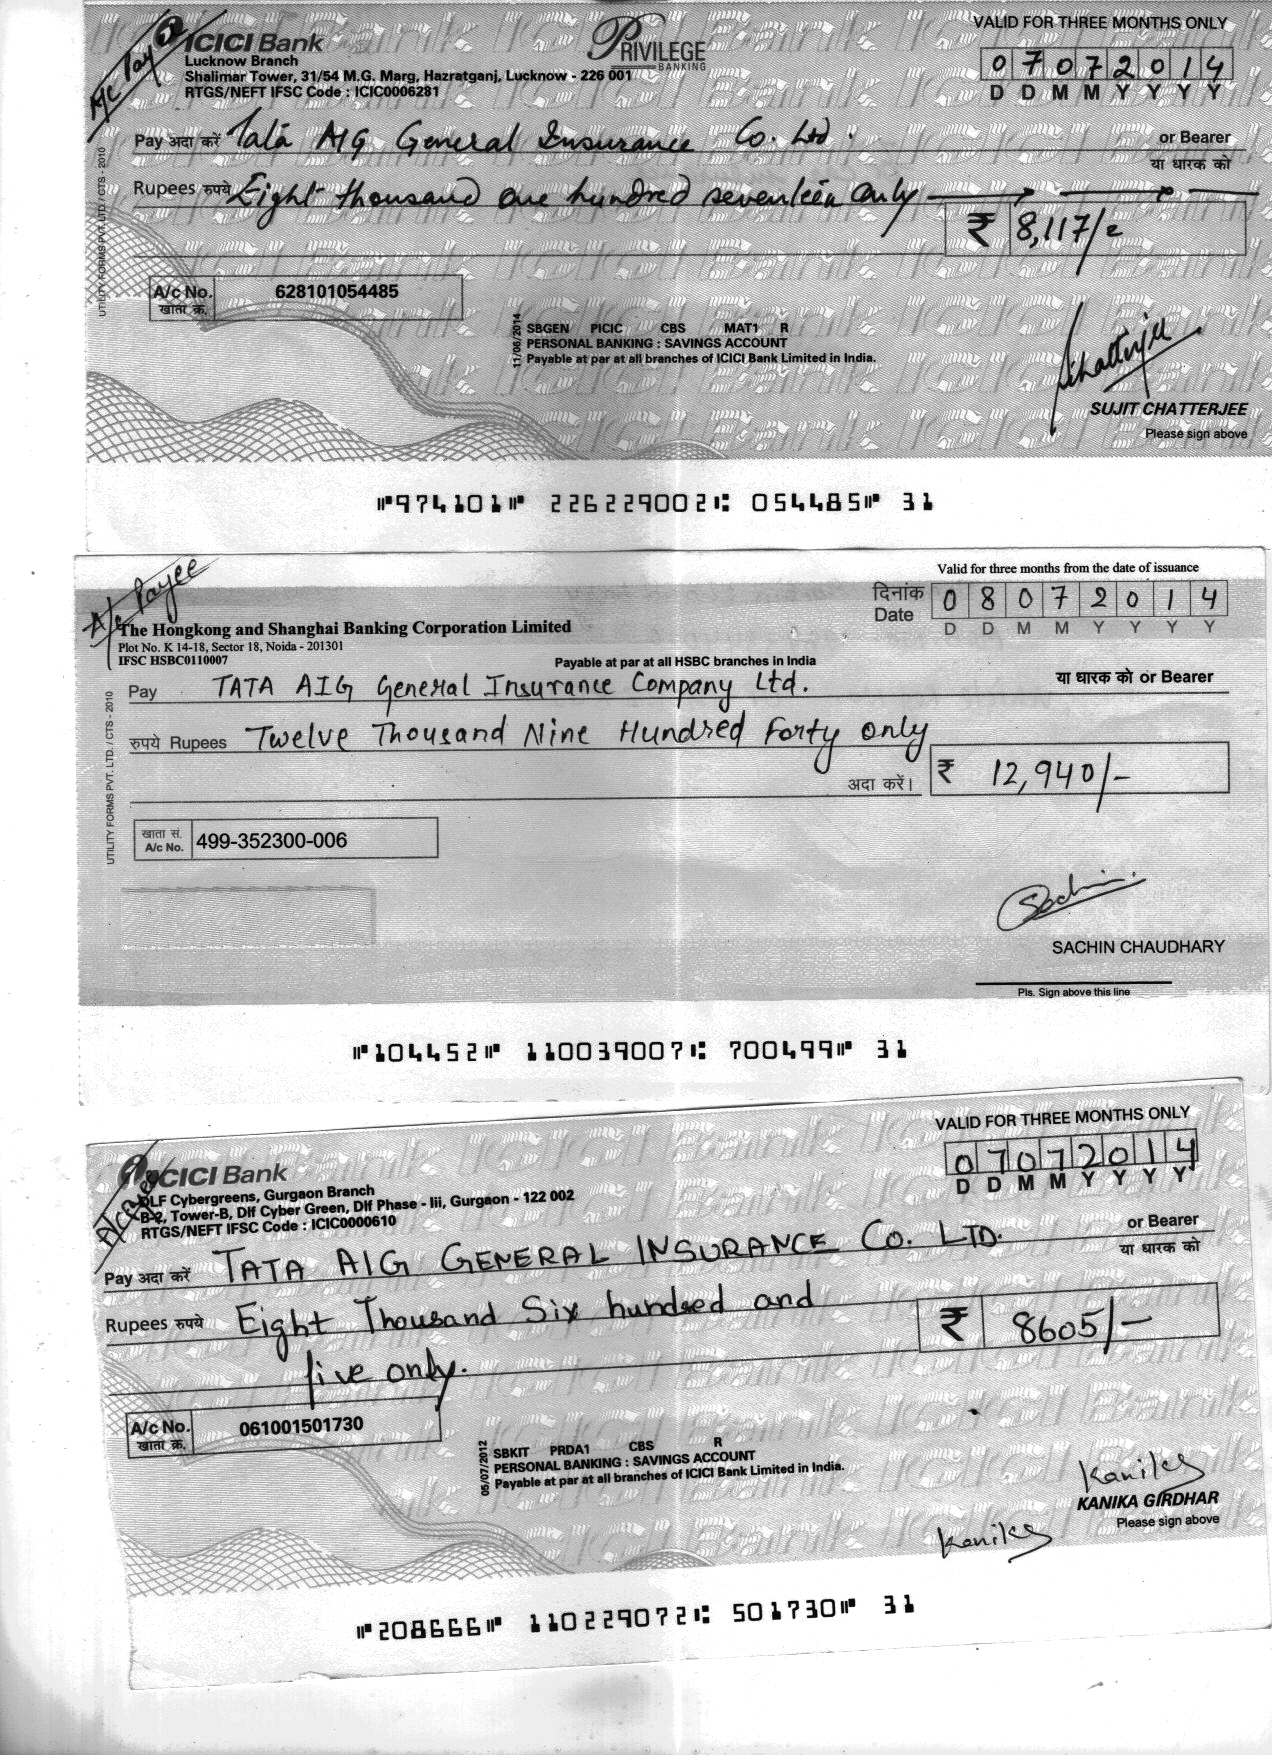 A/c Payee
ICICI Bank
PRIVILEGE
BANKING
VALID FOR THREE MONTHS ONLY
Lucknow Branch
Shalimar Tower, 31/54 M.G. Marg, Hazratganj, Lucknow - 226 001
RTGS/NEFT IFSC Code : ICIC0006281
0 7 0 7 2 0 1 4
D D M M Y Y Y Y
Pay अदा करें Tata AIG General Insurance Co. Ltd. or Bearer
या धारक को
Rupees रुपये Eight thousand one hundred seventeen only
₹ 8,117/-
A/c No. 628101054485
खाता क्र.
UTILITY FORMS PVT. LTD / CTS - 2010
11/06/2014
SBGEN PICIC CBS MAT1 R
PERSONAL BANKING : SAVINGS ACCOUNT
Payable at par at all branches of ICICI Bank Limited in India.
SUJIT CHATTERJEE
Please sign above
⑈974101⑈ 226229002⑆ 054485⑈ 31
A/c Payee
Valid for three months from the date of issuance
दिनांक
Date 0 8 0 7 2 0 1 4
D D M M Y Y Y Y
The Hongkong and Shanghai Banking Corporation Limited
Plot No. K 14-18, Sector 18, Noida - 201301
IFSC HSBC0110007
Payable at par at all HSBC branches in India
Pay TATA AIG General Insurance Company Ltd. या धारक को or Bearer
रुपये Rupees Twelve Thousand Nine Hundred Forty only
अदा करें। ₹ 12,940/-
खाता सं.
A/c No. 499-352300-006
UTILITY FORMS PVT. LTD. / CTS - 2010
Sachin
SACHIN CHAUDHARY
Pls. Sign above this line
⑈104452⑈ 110039007⑆ 700499⑈ 31
A/c Payee
ICICI Bank
VALID FOR THREE MONTHS ONLY
DLF Cybergreens, Gurgaon Branch
B-2, Tower-B, Dlf Cyber Green, Dlf Phase - Iii, Gurgaon - 122 002
RTGS/NEFT IFSC Code : ICIC0000610
0 7 0 7 2 0 1 4
D D M M Y Y Y Y
Pay अदा करें TATA AIG GENERAL INSURANCE CO. LTD. or Bearer
या धारक को
Rupees रुपये Eight Thousand Six hundred and
five only.
₹ 8605/-
A/c No. 061001501730
खाता क्र.
05/07/2012
SBKIT PRDA1 CBS R
PERSONAL BANKING : SAVINGS ACCOUNT
Payable at par at all branches of ICICI Bank Limited in India.
Kanika
KANIKA GIRDHAR
Please sign above
Kanika
⑈208666⑈ 110229072⑆ 501730⑈ 31